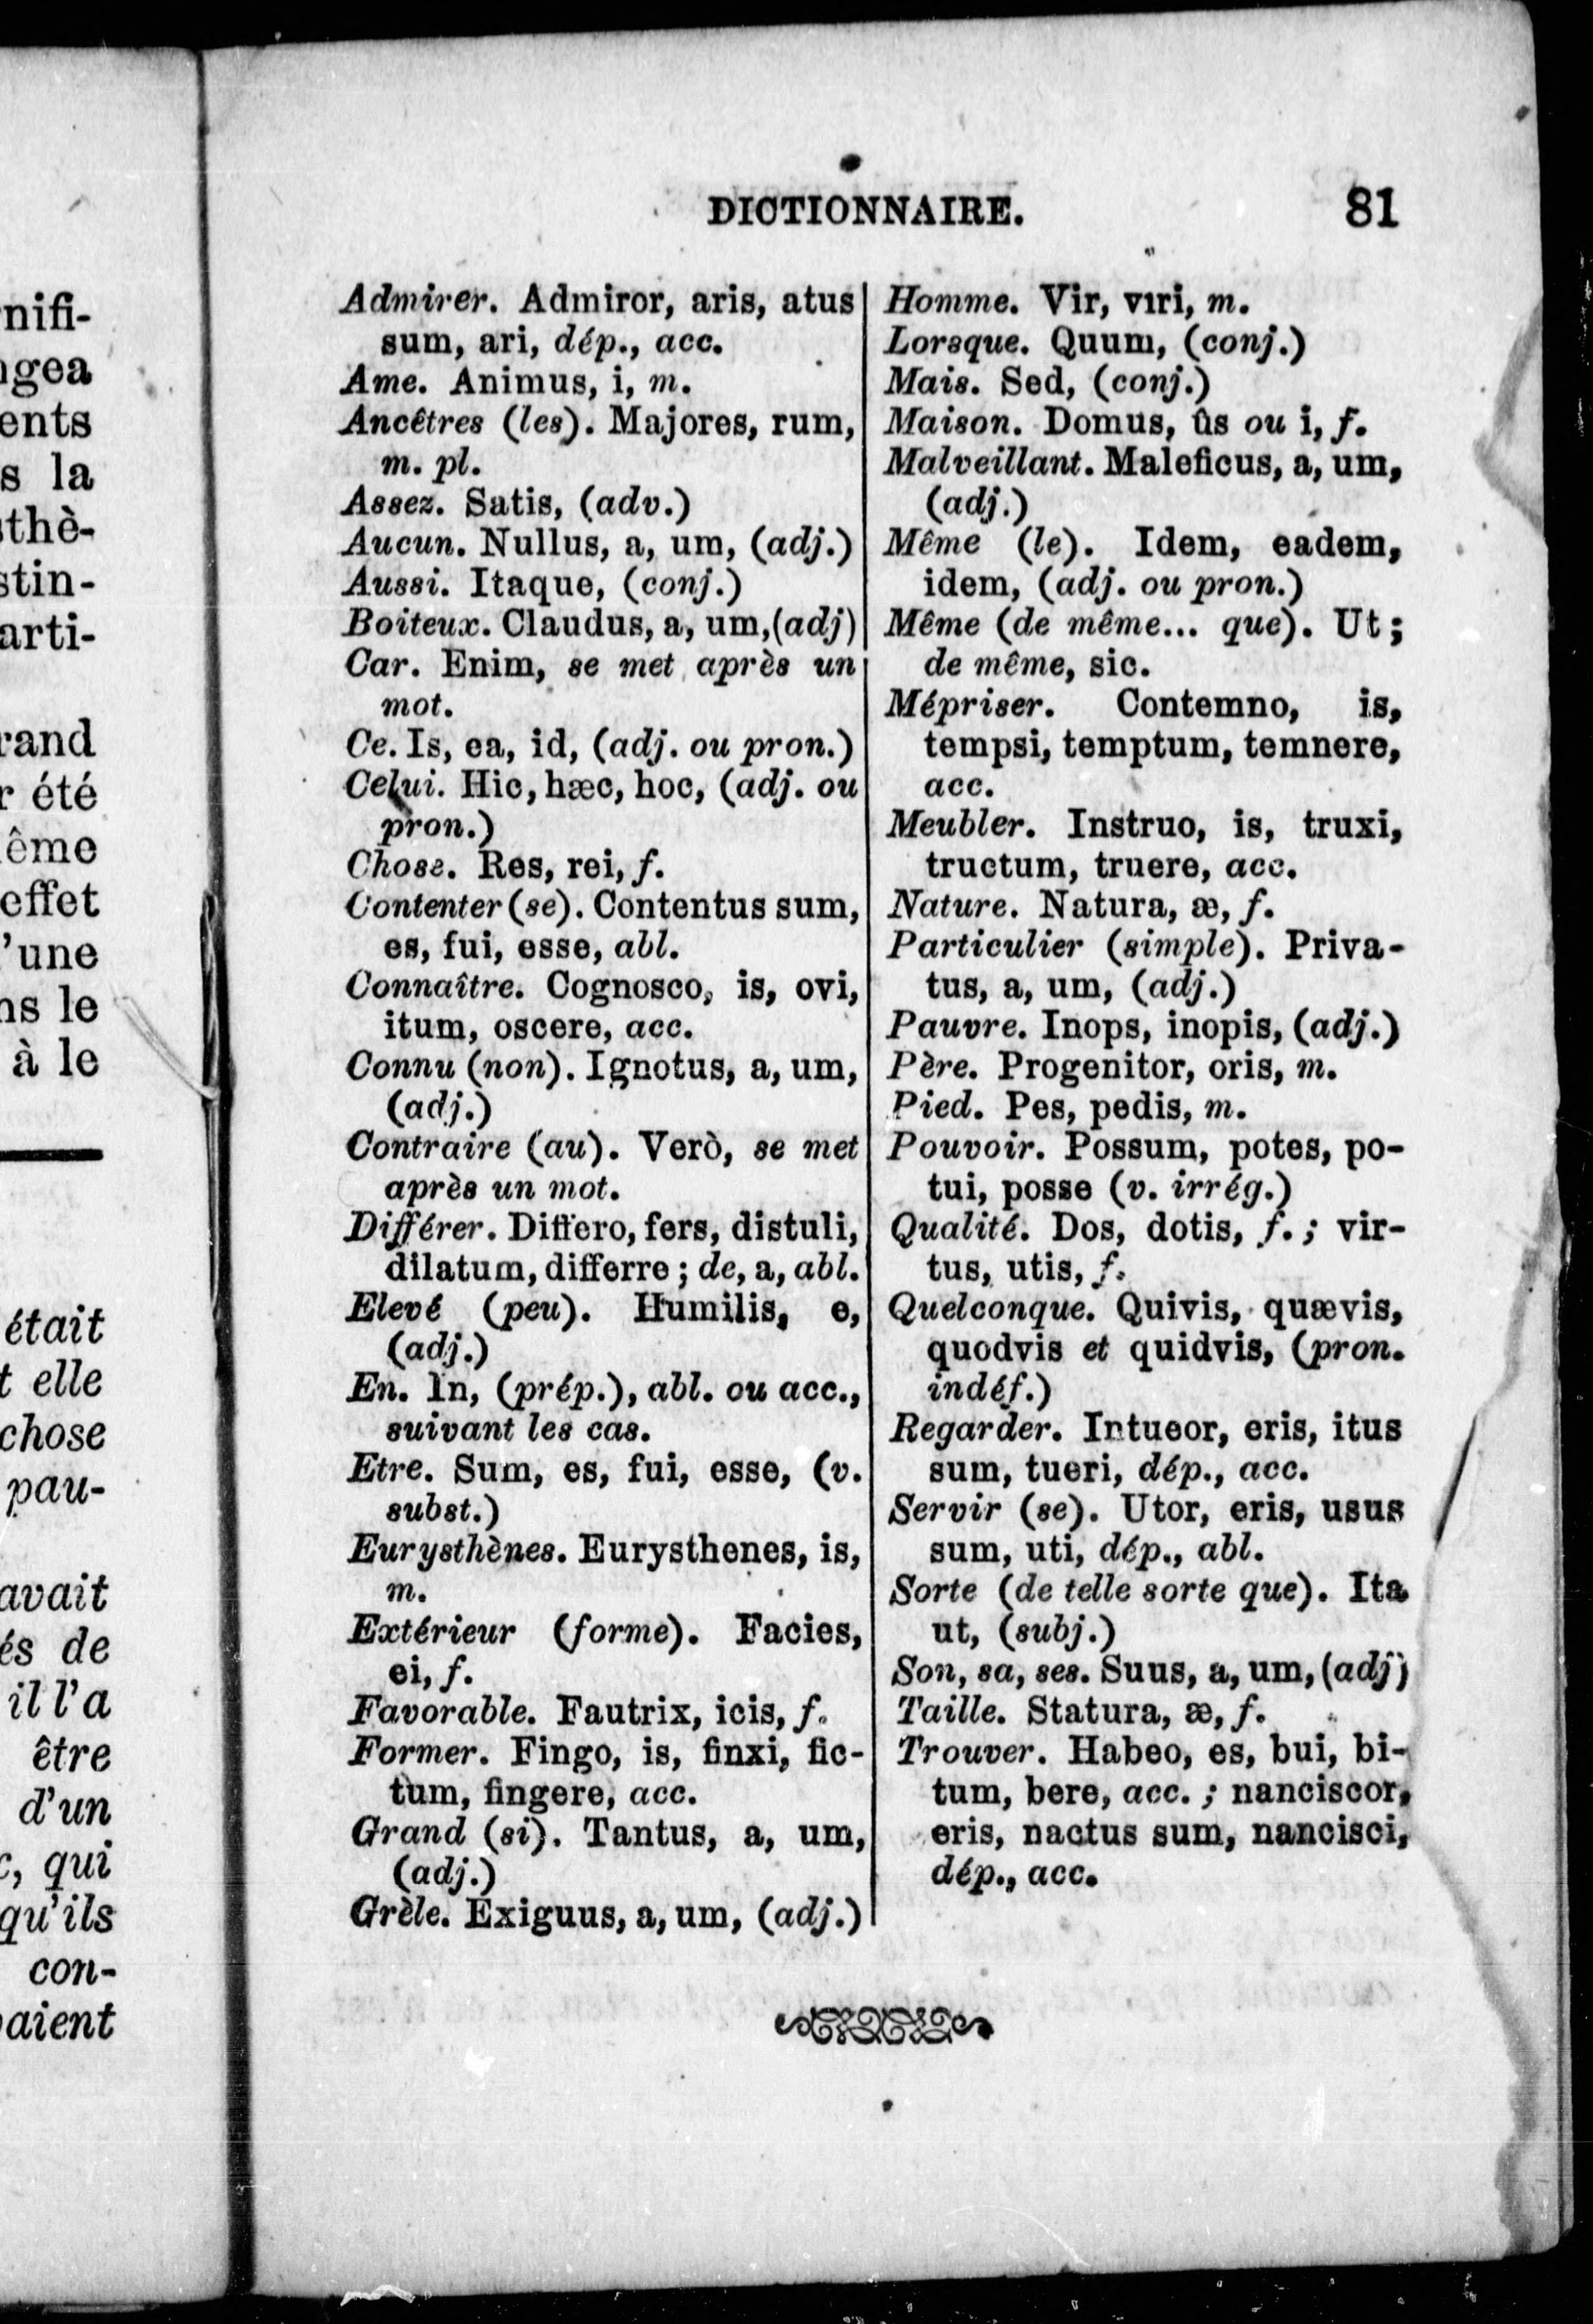 nifi-
gea
ents
s la
sthè-
stin-
arti-
rand
r été
ême
effet
'une
ns le
à le
était
t elle
chose
pau-
avait
és de
il l'a
être
d'un
c, qui
qu'ils
con-
aient
DICTIONNAIRE. 81
Admirer. Admiror, aris, atus
sum, ari, dép., acc.
Ame. Animus, i, m.
Ancêtres (les). Majores, rum,
m. pl.
Assez. Satis, (adv.)
Aucun. Nullus, a, um, (adj.)
Aussi. Itaque, (conj.)
Boiteux. Claudus, a, um,(adj)
Car. Enim, se met après un
mot.
Ce. Is, ea, id, (adj. ou pron.)
Celui. Hic, hæc, hoc, (adj. ou
pron.)
Chose. Res, rei, f.
Contenter (se). Contentus sum,
es, fui, esse, abl.
Connaître. Cognosco, is, ovi,
itum, oscere, acc.
Connu (non). Ignotus, a, um,
(adj.)
Contraire (au). Verò, se met
après un mot.
Différer. Differo, fers, distuli,
dilatum, differre ; de, a, abl.
Elevé (peu). Humilis, e,
(adj.)
En. In, (prép.), abl. ou acc.,
suivant les cas.
Etre. Sum, es, fui, esse, (v.
subst.)
Eurysthènes. Eurysthenes, is,
m.
Extérieur (forme). Facies,
ei, f.
Favorable. Fautrix, icis, f.
Former. Fingo, is, finxi, fic-
tum, fingere, acc.
Grand (si). Tantus, a, um,
(adj.)
Grèle. Exiguus, a, um, (adj.)
Homme. Vir, viri, m.
Lorsque. Quum, (conj.)
Mais. Sed, (conj.)
Maison. Domus, ûs ou i, f.
Malveillant. Maleficus, a, um,
(adj.)
Même (le). Idem, eadem,
idem, (adj. ou pron.)
Même (de même... que). Ut ;
de même, sic.
Mépriser. Contemno, is,
tempsi, temptum, temnere,
acc.
Meubler. Instruo, is, truxi,
tructum, truere, acc.
Nature. Natura, æ, f.
Particulier (simple). Priva-
tus, a, um, (adj.)
Pauvre. Inops, inopis, (adj.)
Père. Progenitor, oris, m.
Pied. Pes, pedis, m.
Pouvoir. Possum, potes, po-
tui, posse (v. irrég.)
Qualité. Dos, dotis, f. ; vir-
tus, utis, f.
Quelconque. Quivis, quævis,
quodvis et quidvis, (pron.
indéf.)
Regarder. Intueor, eris, itus
sum, tueri, dép., acc.
Servir (se). Utor, eris, usus
sum, uti, dép., abl.
Sorte (de telle sorte que). Ita
ut, (subj.)
Son, sa, ses. Suus, a, um, (adj)
Taille. Statura, æ, f.
Trouver. Habeo, es, bui, bi-
tum, bere, acc. ; nanciscor,
eris, nactus sum, nancisci,
dép., acc.